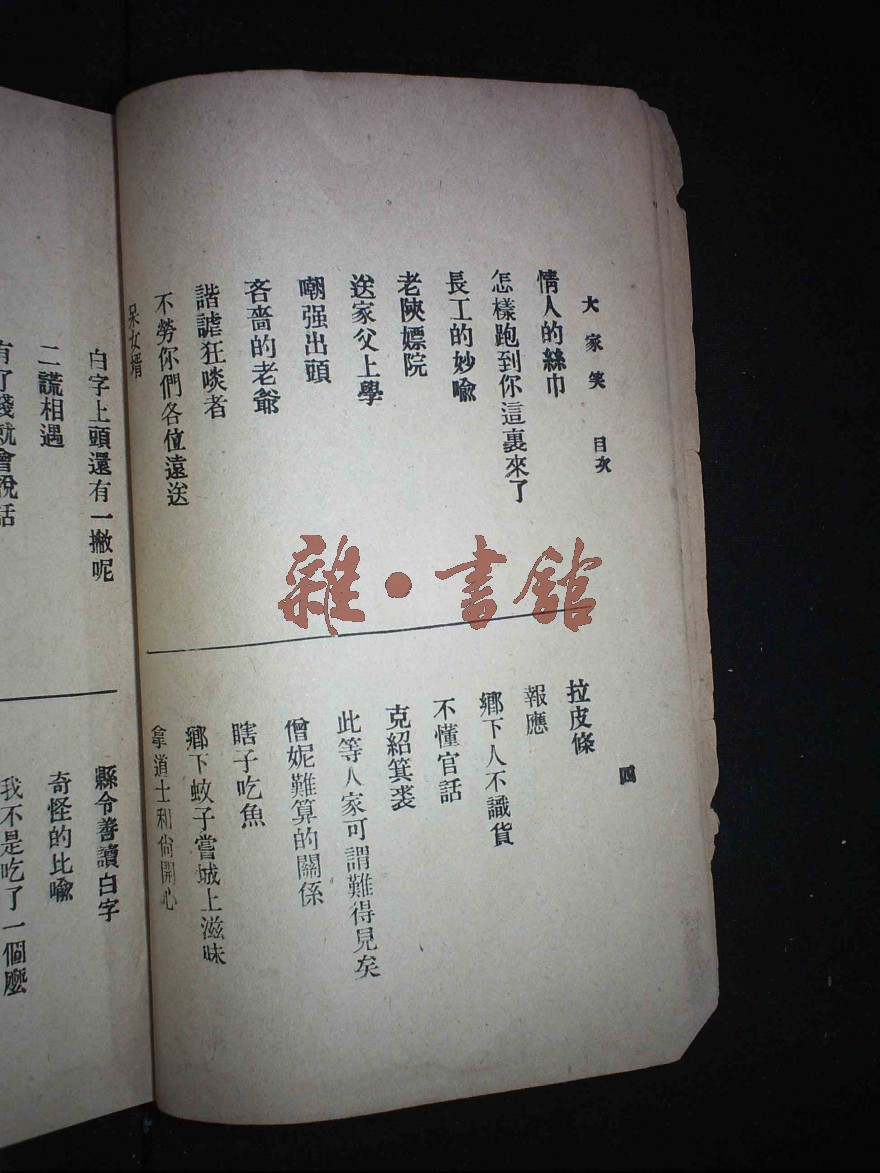 大家笑 目次
四
情人的絲巾
怎樣跑到你這裏來了
長工的妙喩
老陜嫖院
送家父上學
嘲强出頭
吝嗇的老爺
諧謔狂啖者
不勞你們各位遠送
呆女婿
拉皮條
報應
鄉下人不識貨
不懂官話
克紹箕裘
此等人家可謂難得見矣
僧妮難算的關係
瞎子吃魚
鄉下蚊子嘗城上滋味
拿道士和尙開心
白字上頭還有一撇呢
二謊相遇
有了錢就會說話
縣令善讀白字
奇怪的比喩
我不是吃了一個麼
雜·書館